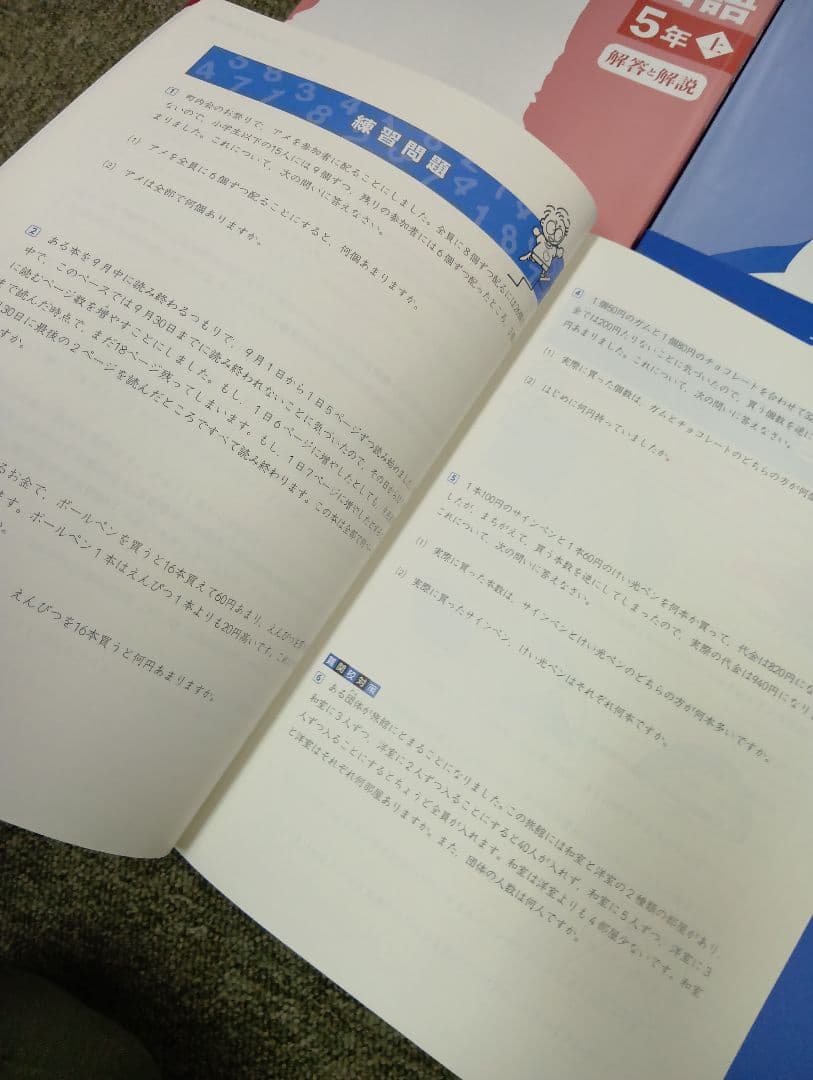 語
5年 上
解答と解説
練習問題
1 町内会のお祭りで、アメを参加者に配ることにしました。全員に8個ずつ配るには
ないので、小学生以下の15人には9個ずつ、残りの参加者には6個ずつ配ったところ、
まりました。これについて、次の問いに答えなさい。
(1) アメを全員に6個ずつ配ることにすると、何個あまりますか。
(2) アメは全部で何個ありますか。
2 ある本を9月中に読み終わるつもりで、9月1日から1日5ページずつ読み始めました。
中で、このペースでは9月30日までに読み終われないことに気づいたので、その日から1日
に読むページ数を増やすことにしました。もし、1日6ページに増やしたとしても、
まで読んだ時点で、まだ18ページ残ってしまいます。もし、1日7ページに増やしたとすると
30日に最後の2ページを読んだところですべて読み終わります。この本は全部で何ペー
すか。
るお金で、ボールペンを買うと16本買えて60円あまり、えんぴつを
ます。ボールペン1本はえんぴつ1本よりも20円高いです。これ
えんぴつを16本買うと何円あまりますか。
4 1個60円のガムと1個80円のチョコレートを合わせて
金では200円たりないことに気づいたので、買う個数を逆に
円あまりました。これについて、次の問いに答えなさい。
(1) 実際に買った個数は、ガムとチョコレートのどちらの方が何個
(2) はじめに何円持っていましたか。
5 1本100円のサインペンと1本60円のけい光ペンを何本か買って、代金は820円にな
したが、まちがえて、買う本数を逆にしてしまったので、実際の代金は940円になり
これについて、次の問いに答えなさい。
(1) 実際に買った本数は、サインペンとけい光ペンのどちらの方が何本多いですか。
(2) 実際に買ったサインペン、けい光ペンはそれぞれ何本ですか。
難関校対策
6 ある団体が旅館にとまることになりました。この旅館には和室と洋室の2種類の部屋があり、
和室に3人ずつ、洋室に2人ずつ入ることにすると40人が入れず、和室に5人ずつ、洋室に3
人ずつ入ることにするとちょうど全員が入れます。和室は洋室よりも4部屋少ないです。和室
と洋室はそれぞれ何部屋ありますか。また、団体の人数は何人ですか。